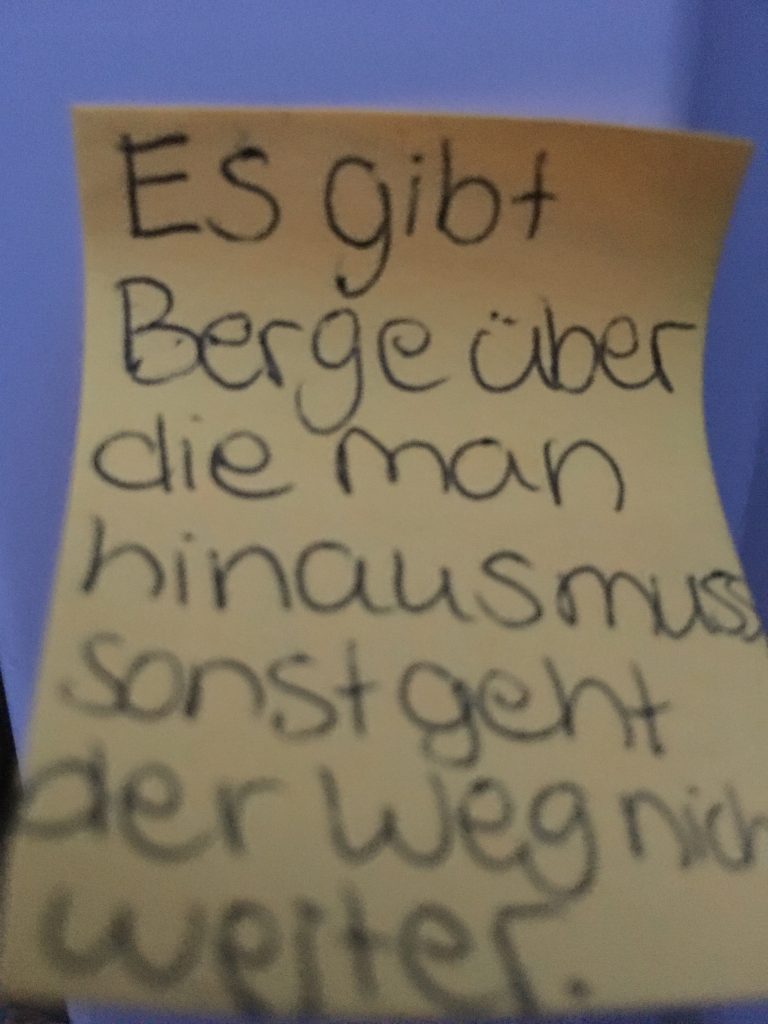 Es gibt
Berge über
die man
hinausmuss
sonst geht
der Weg nich
weiter.